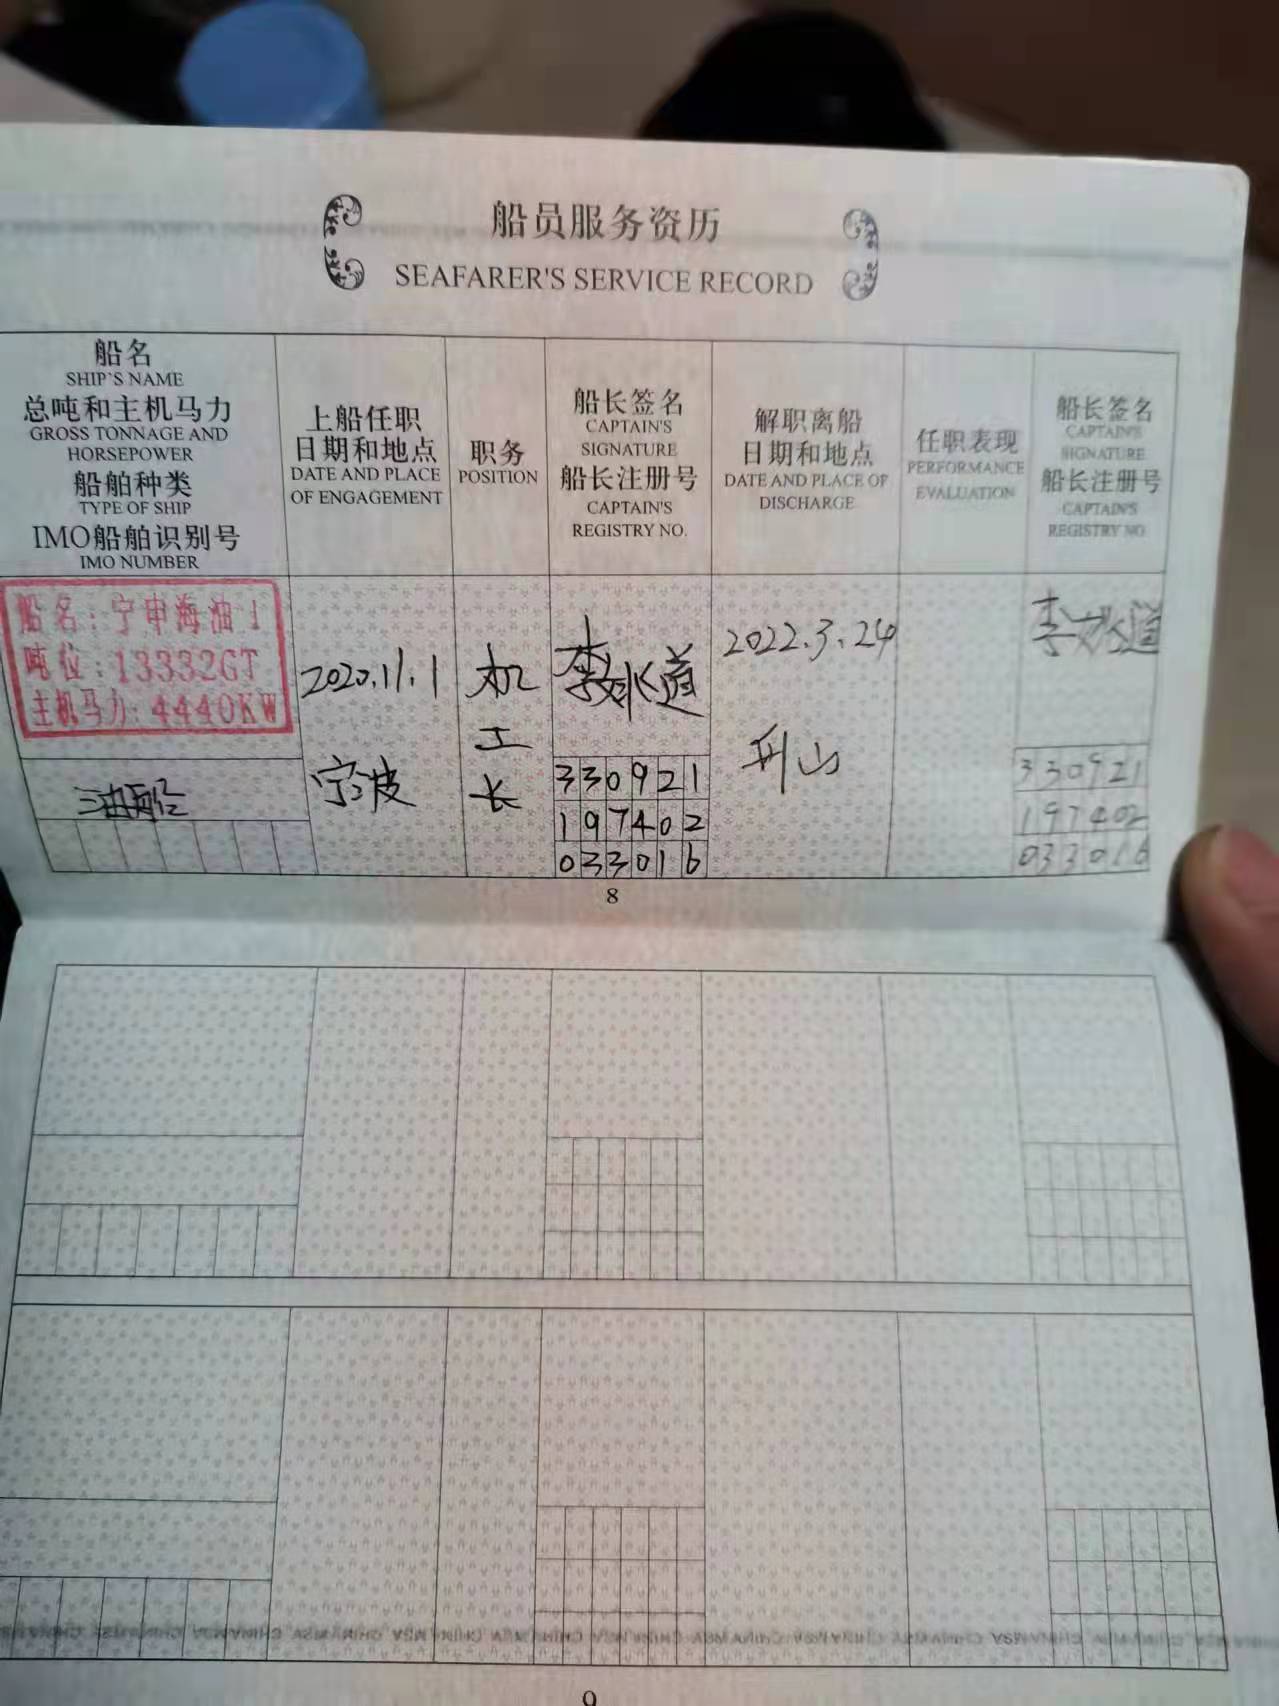 船员服务资历
SEAFARER'S SERVICE RECORD
船名
SHIP'S NAME
总吨和主机马力
GROSS TONNAGE AND
HORSEPOWER
船舶种类
TYPE OF SHIP
IMO船舶识别号
IMO NUMBER
上船任职
日期和地点
DATE AND PLACE
OF ENGAGEMENT
职务
POSITION
船长签名
CAPTAIN'S
SIGNATURE
船长注册号
CAPTAIN'S
REGISTRY NO.
解职离船
日期和地点
DATE AND PLACE OF
DISCHARGE
任职表现
PERFORMANCE
EVALUATION
船长签名
CAPTAIN'S
SIGNATURE
船长注册号
CAPTAIN'S
REGISTRY NO
船名:宁申海油1
吨位:13332GT
主机马力:4440KW
油船
2020.11.1
宁波
机
工
长
330921
197402
033016
2022.3.24
330921
197402
033016
8
9